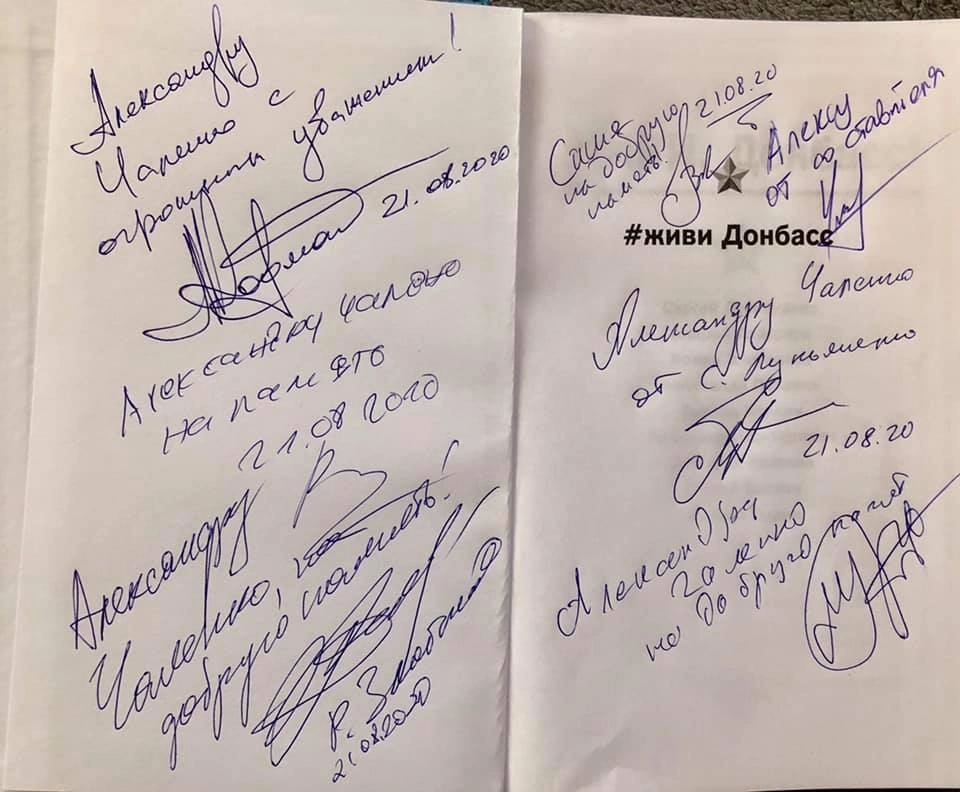 Александру
Чаленко с
огромным уважением!
21.08.2020
Александру Чаленко
на память
21.08 2020
Александру
Чаленко, на
добрую память!
Р. Злобин
21.08.2020
Саше
на добрую
память!
21.08.20
Алексу
от составителя
#живи Донбасс
Александру Чаленко
от С. Лукьяненко
21.08.20
Александру
Чаленко
на добрую памят